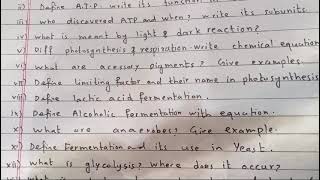 ii) Define A.T.P. write its function in
iii) who discovered ATP and when? write its subunits.
iv) what is meant by light & dark reaction?
v) Diff photosynthesis & respiration. write chemical equation
vi) what are acessory pigments? Give examples.
vii) Define limiting factor and their name in photosynthesis
viii) Define lactic acid fermentation.
ix) Define Alcoholic Fermentation with equation.
x) What are anaerobes? Give example.
xi) Define Fermentation and its use in Yeast.
xii) what is glycolysis? Where does it occur?